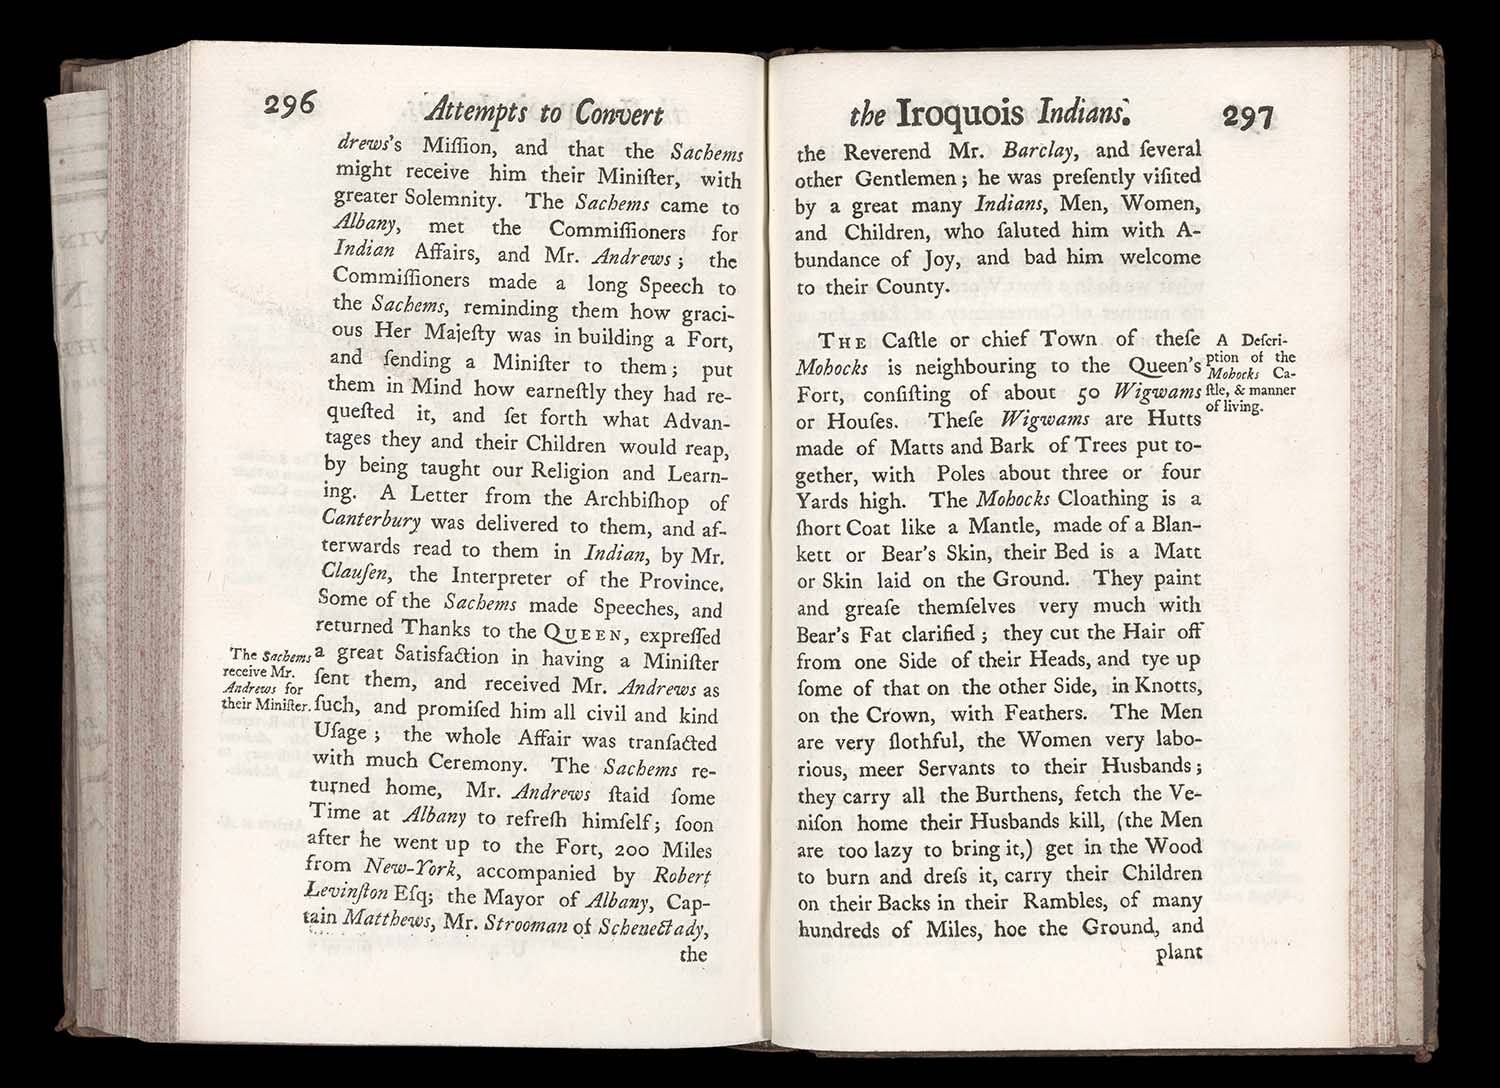 296 Attempts to Convert
drews's Miſſion, and that the Sachems
might receive him their Miniſter, with
greater Solemnity. The Sachems came to
Albany, met the Commiſſioners for
Indian Affairs, and Mr. Andrews; the
Commiſſioners made a long Speech to
the Sachems, reminding them how graci-
ous Her Majeſty was in building a Fort,
and ſending a Miniſter to them; put
them in Mind how earneſtly they had re-
queſted it, and ſet forth what Advan-
tages they and their Children would reap,
by being taught our Religion and Learn-
ing. A Letter from the Archbiſhop of
Canterbury was delivered to them, and af-
terwards read to them in Indian, by Mr.
Clauſen, the Interpreter of the Province.
Some of the Sachems made Speeches, and
returned Thanks to the QUEEN, expreſſed
a great Satisfaction in having a Miniſter
ſent them, and received Mr. Andrews as
ſuch, and promiſed him all civil and kind
Uſage; the whole Affair was tranſacted
with much Ceremony. The Sachems re-
turned home, Mr. Andrews ſtaid ſome
Time at Albany to refreſh himſelf; ſoon
after he went up to the Fort, 200 Miles
from New-York, accompanied by Robert
Levinſton Eſq; the Mayor of Albany, Cap-
tain Matthews, Mr. Strooman of Schenectady,
the
The Sachems
receive Mr.
Andrews for
their Miniſter.
the Iroquois Indians. 297
the Reverend Mr. Barclay, and ſeveral
other Gentlemen; he was preſently viſited
by a great many Indians, Men, Women,
and Children, who ſaluted him with A-
bundance of Joy, and bad him welcome
to their County.
THE Caſtle or chief Town of theſe
Mohocks is neighbouring to the Queen's
Fort, conſiſting of about 50 Wigwams
or Houſes. Theſe Wigwams are Hutts
made of Matts and Bark of Trees put to-
gether, with Poles about three or four
Yards high. The Mohocks Cloathing is a
ſhort Coat like a Mantle, made of a Blan-
kett or Bear's Skin, their Bed is a Matt
or Skin laid on the Ground. They paint
and greaſe themſelves very much with
Bear's Fat clarified; they cut the Hair off
from one Side of their Heads, and tye up
ſome of that on the other Side, in Knotts,
on the Crown, with Feathers. The Men
are very ſlothful, the Women very labo-
rious, meer Servants to their Husbands;
they carry all the Burthens, fetch the Ve-
niſon home their Husbands kill, (the Men
are too lazy to bring it,) get in the Wood
to burn and dreſs it, carry their Children
on their Backs in their Rambles, of many
hundreds of Miles, hoe the Ground, and
plant
A Deſcri-
ption of the
Mohocks Ca-
ſtle, & manner
of living.